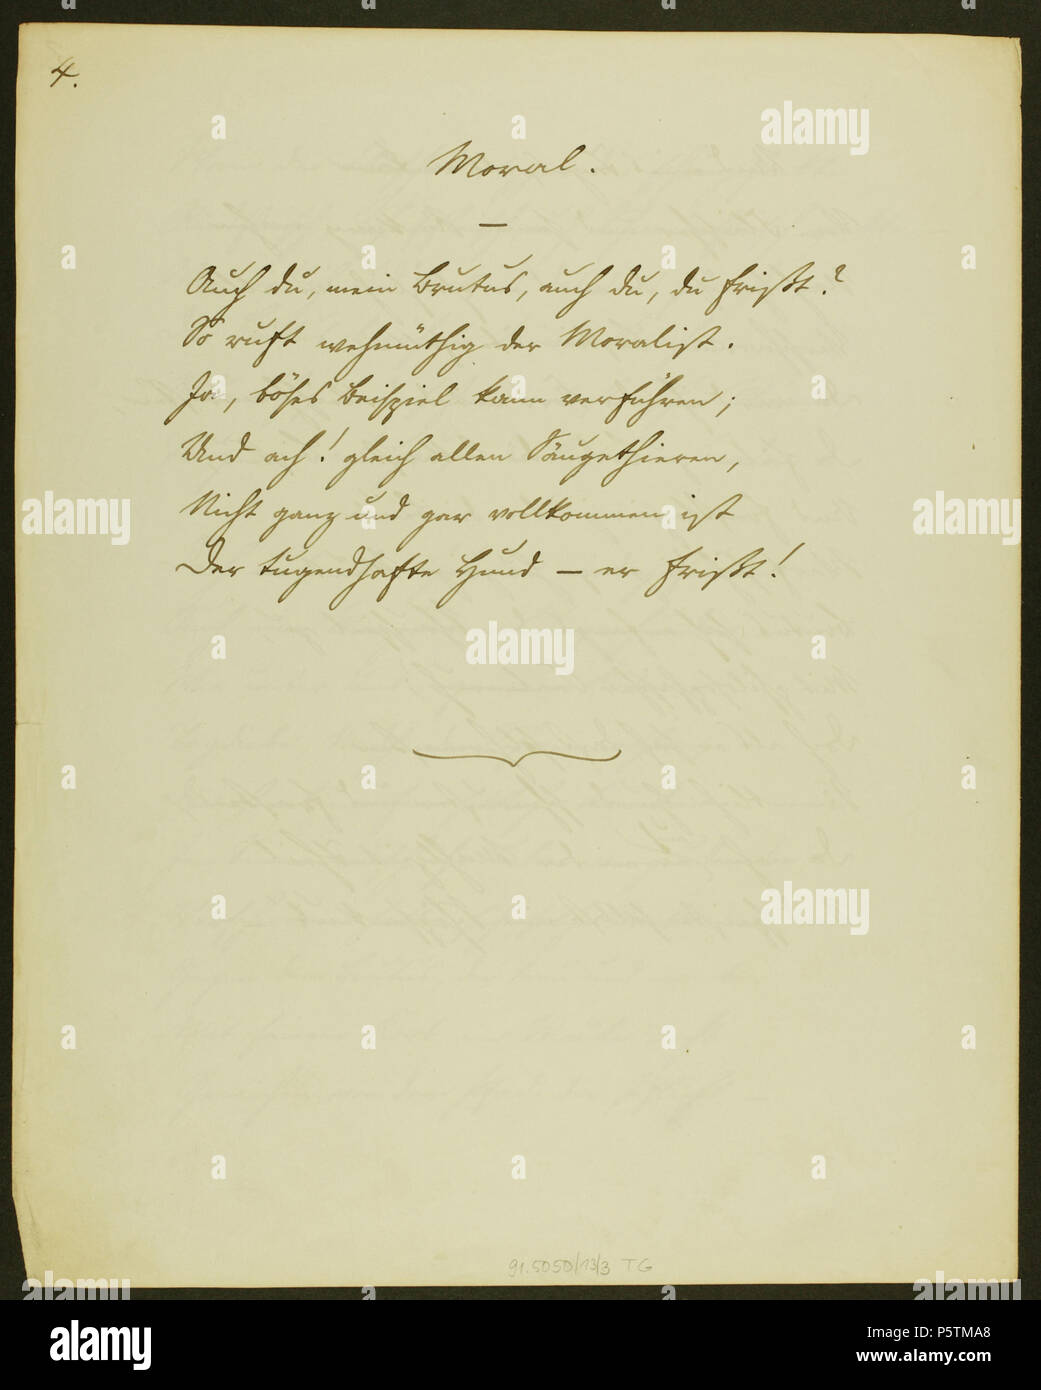 4.
Moral.
Auch du, mein Brutus, auch du, du frißt?
So ruft wehmüthig der Moralist.
Ja, böses Beispiel kann verführen;
Und ach! gleich allen Säugethieren,
Nicht ganz und gar vollkommen ist
Der tugendhafte Hund — er frißt!
91.5050/13/3 TG
alamy
alamy
Image ID: P5TMA8
www.alamy.com